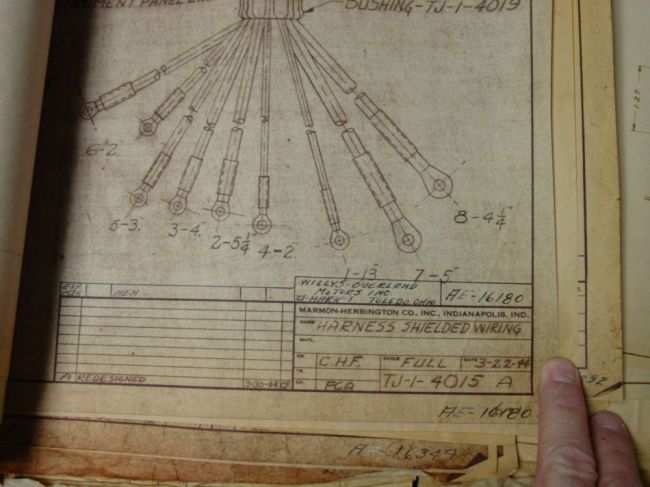 INSTRUMENT PANEL
BUSHING-TJ-1-4019
6-2"
5-3"
3-4"
2-5¼"
4-2"
1-1⅜"
7-5"
8-4¼"
WILLYS-OVERLAND
MOTORS INC.
TOLEDO, OHIO
AE-16180
MARMON-HERRINGTON CO., INC., INDIANAPOLIS, IND.
NAME HARNESS SHIELDED WIRING
MATL.
DR. C.H.F. SCALE FULL DATE 3-22-44
TR.
CK. FCA TJ-1-4015 A
A REDESIGNED 3-30-44
AE-16180
1.27